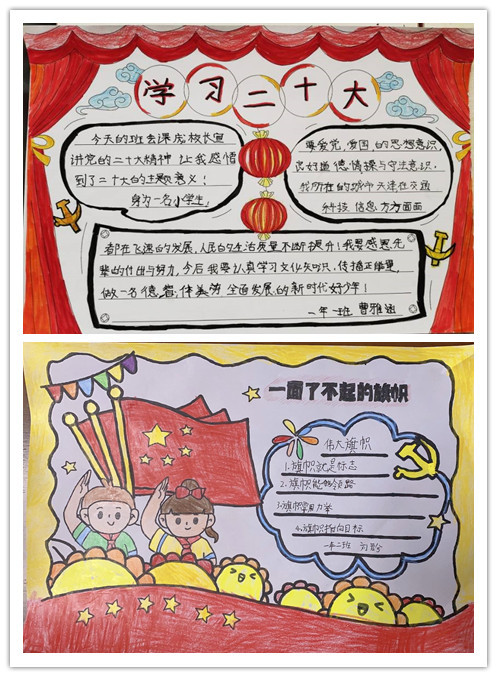 学习二十大
今天的班会课庞校长宣
讲党的二十大精神 让我感悟
到了二十大的主题意义！
身为一名小学生，
要爱党，爱国，的思想意识，
良好道德情操与守法意识，
我所在的城市无论在交通
科技 信息 方方面面
都在飞速的发展，人民的生活质量不断提升！我要感恩先
辈的付出与努力，今后我要认真学习文化知识，传播正能量，
做一名德，智，体美劳 全面发展，的新时代好少年！
一年一班 曹雅
一面了不起的旗帜
伟大旗帜
1.旗帜就是标志
2.旗帜能够领路
3.旗帜带来力举
4.旗帜指向目标
一年二班